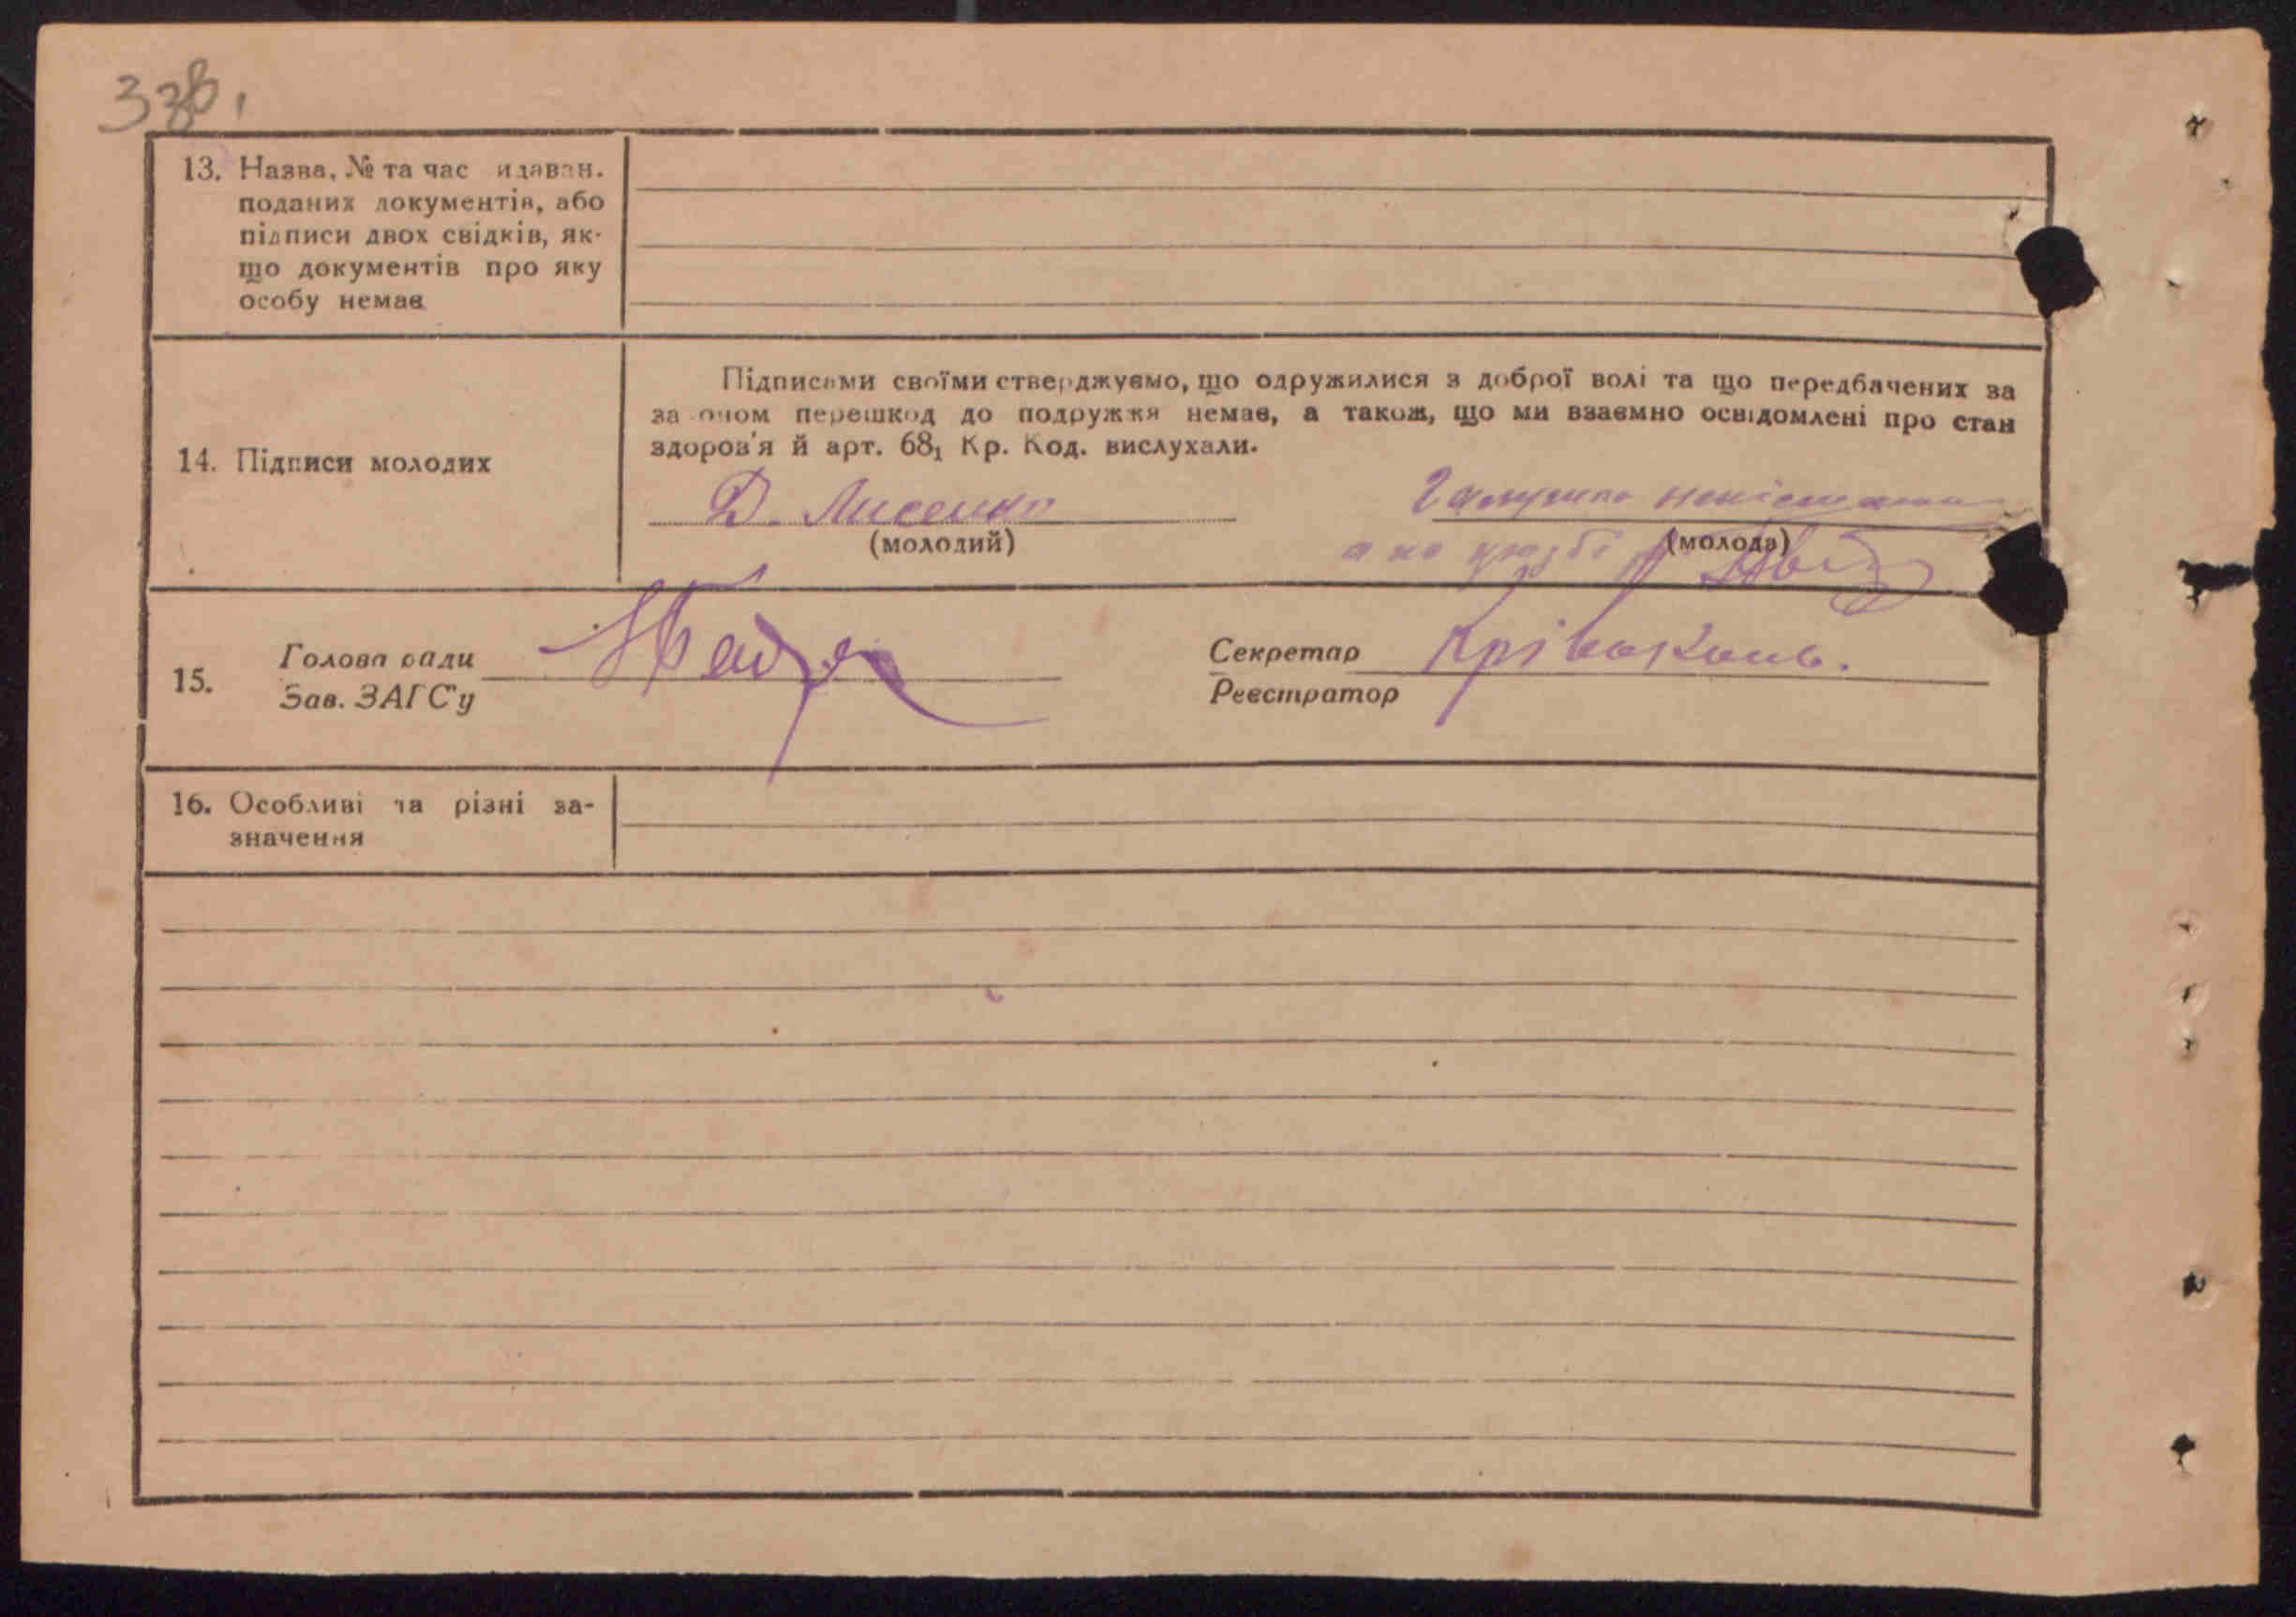 13. Назва, № та час видаван.
поданих документів, або
підписи двох свідків, як-
що документів про яку
особу немає
Підписами своїми стверджуємо, що одружилися з доброї волі та що передбачених за
законом перешкод до подружжя немає, а також, що ми взаємно освідомлені про стан
здоров'я й арт. 68₁ Кр. Код. вислухали.
14. Підписи молодих
Д. Лисенко
(молодий)
(молода)
15.
Голова ради
Зав. ЗАГС'у
Секретар
Реєстратор
16. Особливі та різні за-
значення